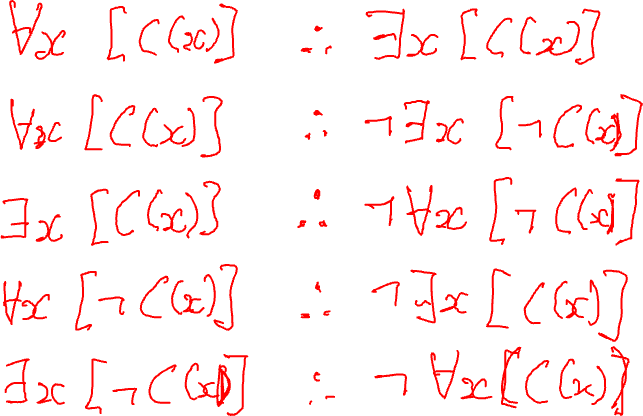 ∀x [C(x)] ∴ ∃x [C(x)]
∀x [C(x)] ∴ ¬∃x [¬C(x)]
∃x [C(x)] ∴ ¬∀x [¬C(x)]
∀x [¬C(x)] ∴ ¬∃x [C(x)]
∃x [¬C(x)] ∴ ¬∀x [C(x)]